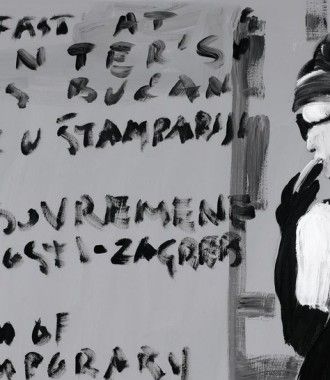 FAST AT
N TER'S
S BUĆAN
E U ŠTAMPARIJI
SUVREMENE
OSTI-ZAGREB
M OF
MPORARY